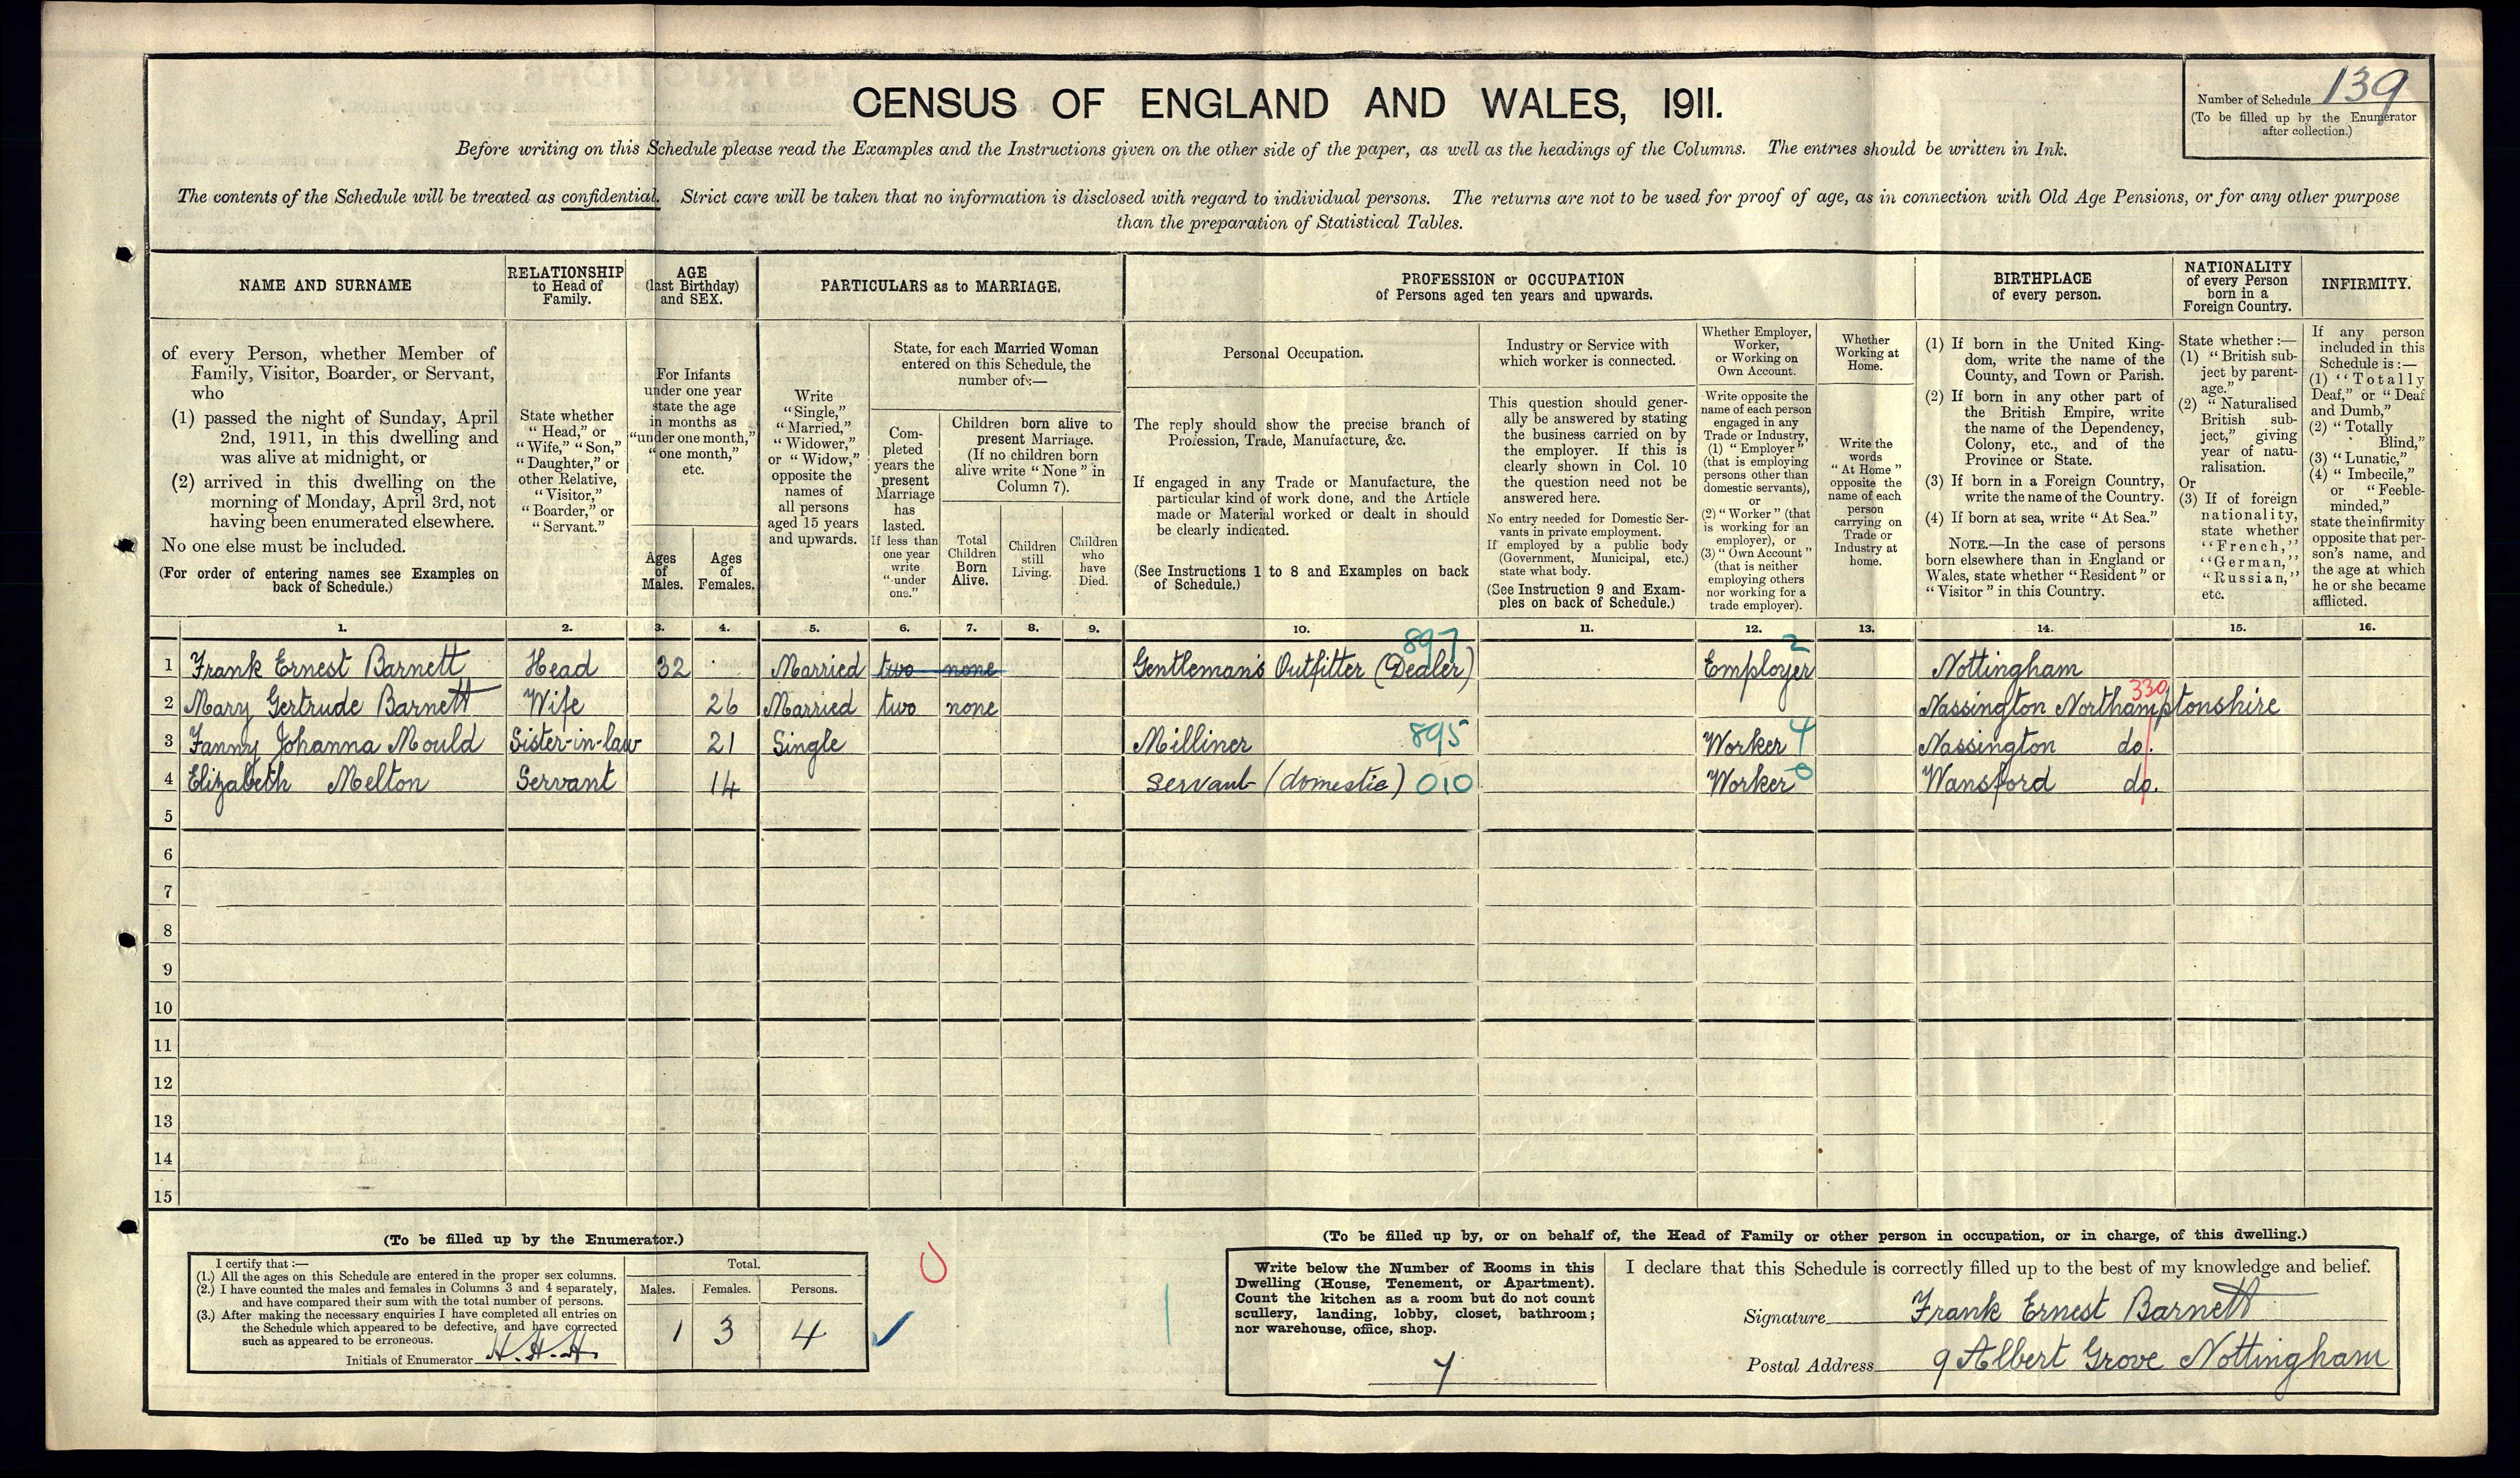 CENSUS OF ENGLAND AND WALES, 1911.
Number of Schedule 139
(To be filled up by the Enumerator
after collection.)
Before writing on this Schedule please read the Examples and the Instructions given on the other side of the paper, as well as the headings of the Columns. The entries should be written in Ink.
The contents of the Schedule will be treated as confidential. Strict care will be taken that no information is disclosed with regard to individual persons. The returns are not to be used for proof of age, as in connection with Old Age Pensions, or for any other purpose
than the preparation of Statistical Tables.
NAME AND SURNAME
of every Person, whether Member of
Family, Visitor, Boarder, or Servant,
who
(1) passed the night of Sunday, April
2nd, 1911, in this dwelling and
was alive at midnight, or
(2) arrived in this dwelling on the
morning of Monday, April 3rd, not
having been enumerated elsewhere.
No one else must be included.
(For order of entering names see Examples on
back of Schedule.)
RELATIONSHIP
to Head of
Family.
State whether
"Head," or
"Wife," "Son,"
"Daughter," or
other Relative,
"Visitor,"
"Boarder," or
"Servant."
AGE
(last Birthday)
and SEX.
For Infants
under one year
state the age
in months as
"under one month,"
"one month,"
etc.
Ages
of
Males.
Ages
of
Females.
PARTICULARS as to MARRIAGE.
Write
"Single,"
"Married,"
"Widower,"
or "Widow,"
opposite the
names of
all persons
aged 15 years
and upwards.
State, for each Married Woman
entered on this Schedule, the
number of:—
Com-
pleted
years the
present
Marriage
has
lasted.
If less than
one year
write
"under
one."
Children born alive to
present Marriage.
(If no children born
alive write "None" in
Column 7).
Total
Children
Born
Alive.
Children
still
Living.
Children
who
have
Died.
PROFESSION or OCCUPATION
of Persons aged ten years and upwards.
Personal Occupation.
The reply should show the precise branch of
Profession, Trade, Manufacture, &c.
If engaged in any Trade or Manufacture, the
particular kind of work done, and the Article
made or Material worked or dealt in should
be clearly indicated.
(See Instructions 1 to 8 and Examples on back
of Schedule.)
Industry or Service with
which worker is connected.
This question should gener-
ally be answered by stating
the business carried on by
the employer. If this is
clearly shown in Col. 10
the question need not be
answered here.
No entry needed for Domestic Ser-
vants in private employment.
If employed by a public body
(Government, Municipal, etc.)
state what body.
(See Instruction 9 and Exam-
ples on back of Schedule.)
Whether Employer,
Worker,
or Working on
Own Account.
Write opposite the
name of each person
engaged in any
Trade or Industry,
(1) "Employer"
(that is employing
persons other than
domestic servants),
or
(2) "Worker" (that
is working for an
employer), or
(3) "Own Account"
(that is neither
employing others
nor working for a
trade employer).
Whether
Working at
Home.
Write the
words
"At Home"
opposite the
name of each
person
carrying on
Trade or
Industry at
home.
BIRTHPLACE
of every person.
(1) If born in the United King-
dom, write the name of the
County, and Town or Parish.
(2) If born in any other part of
the British Empire, write
the name of the Dependency,
Colony, etc., and of the
Province or State.
(3) If born in a Foreign Country,
write the name of the Country.
(4) If born at sea, write "At Sea."
NOTE.—In the case of persons
born elsewhere than in England or
Wales, state whether "Resident" or
"Visitor" in this Country.
NATIONALITY
of every Person
born in a
Foreign Country.
State whether:—
(1) "British sub-
ject by parent-
age."
(2) "Naturalised
British sub-
ject," giving
year of natu-
ralisation.
Or
(3) If of foreign
nationality,
state whether
"French,"
"German,"
"Russian,"
etc.
INFIRMITY.
If any person
included in this
Schedule is:—
(1) "Totally
Deaf," or "Deaf
and Dumb,"
(2) "Totally
Blind,"
(3) "Lunatic,"
(4) "Imbecile,"
or "Feeble-
minded,"
state the infirmity
opposite that per-
son's name, and
the age at which
he or she became
afflicted.
1. 2. 3. 4. 5. 6. 7. 8. 9. 10. 11. 12. 13. 14. 15. 16.
897 2
1 Frank Ernest Barnett Head 32 Married two none Gentleman's Outfitter (Dealer) Employer Nottingham
330
2 Mary Gertrude Barnett Wife 26 Married two none Nassington Northamptonshire
3 Fanny Johanna Mould Sister-in-law 21 Single Milliner 895 Worker 4 Nassington do.
4 Elizabeth Melton Servant 14 Servant (domestic) 010 Worker 0 Wansford do.
5
6
7
8
9
10
11
12
13
14
15
(To be filled up by the Enumerator.)
I certify that:—
(1.) All the ages on this Schedule are entered in the proper sex columns.
(2.) I have counted the males and females in Columns 3 and 4 separately,
and have compared their sum with the total number of persons.
(3.) After making the necessary enquiries I have completed all entries on
the Schedule which appeared to be defective, and have corrected
such as appeared to be erroneous.
Initials of Enumerator H.H.H.
Total.
Males. Females. Persons.
1 3 4
(To be filled up by, or on behalf of, the Head of Family or other person in occupation, or in charge, of this dwelling.)
Write below the Number of Rooms in this
Dwelling (House, Tenement, or Apartment).
Count the kitchen as a room but do not count
scullery, landing, lobby, closet, bathroom;
nor warehouse, office, shop.
7
I declare that this Schedule is correctly filled up to the best of my knowledge and belief.
Signature Frank Ernest Barnett
Postal Address 9 Albert Grove Nottingham